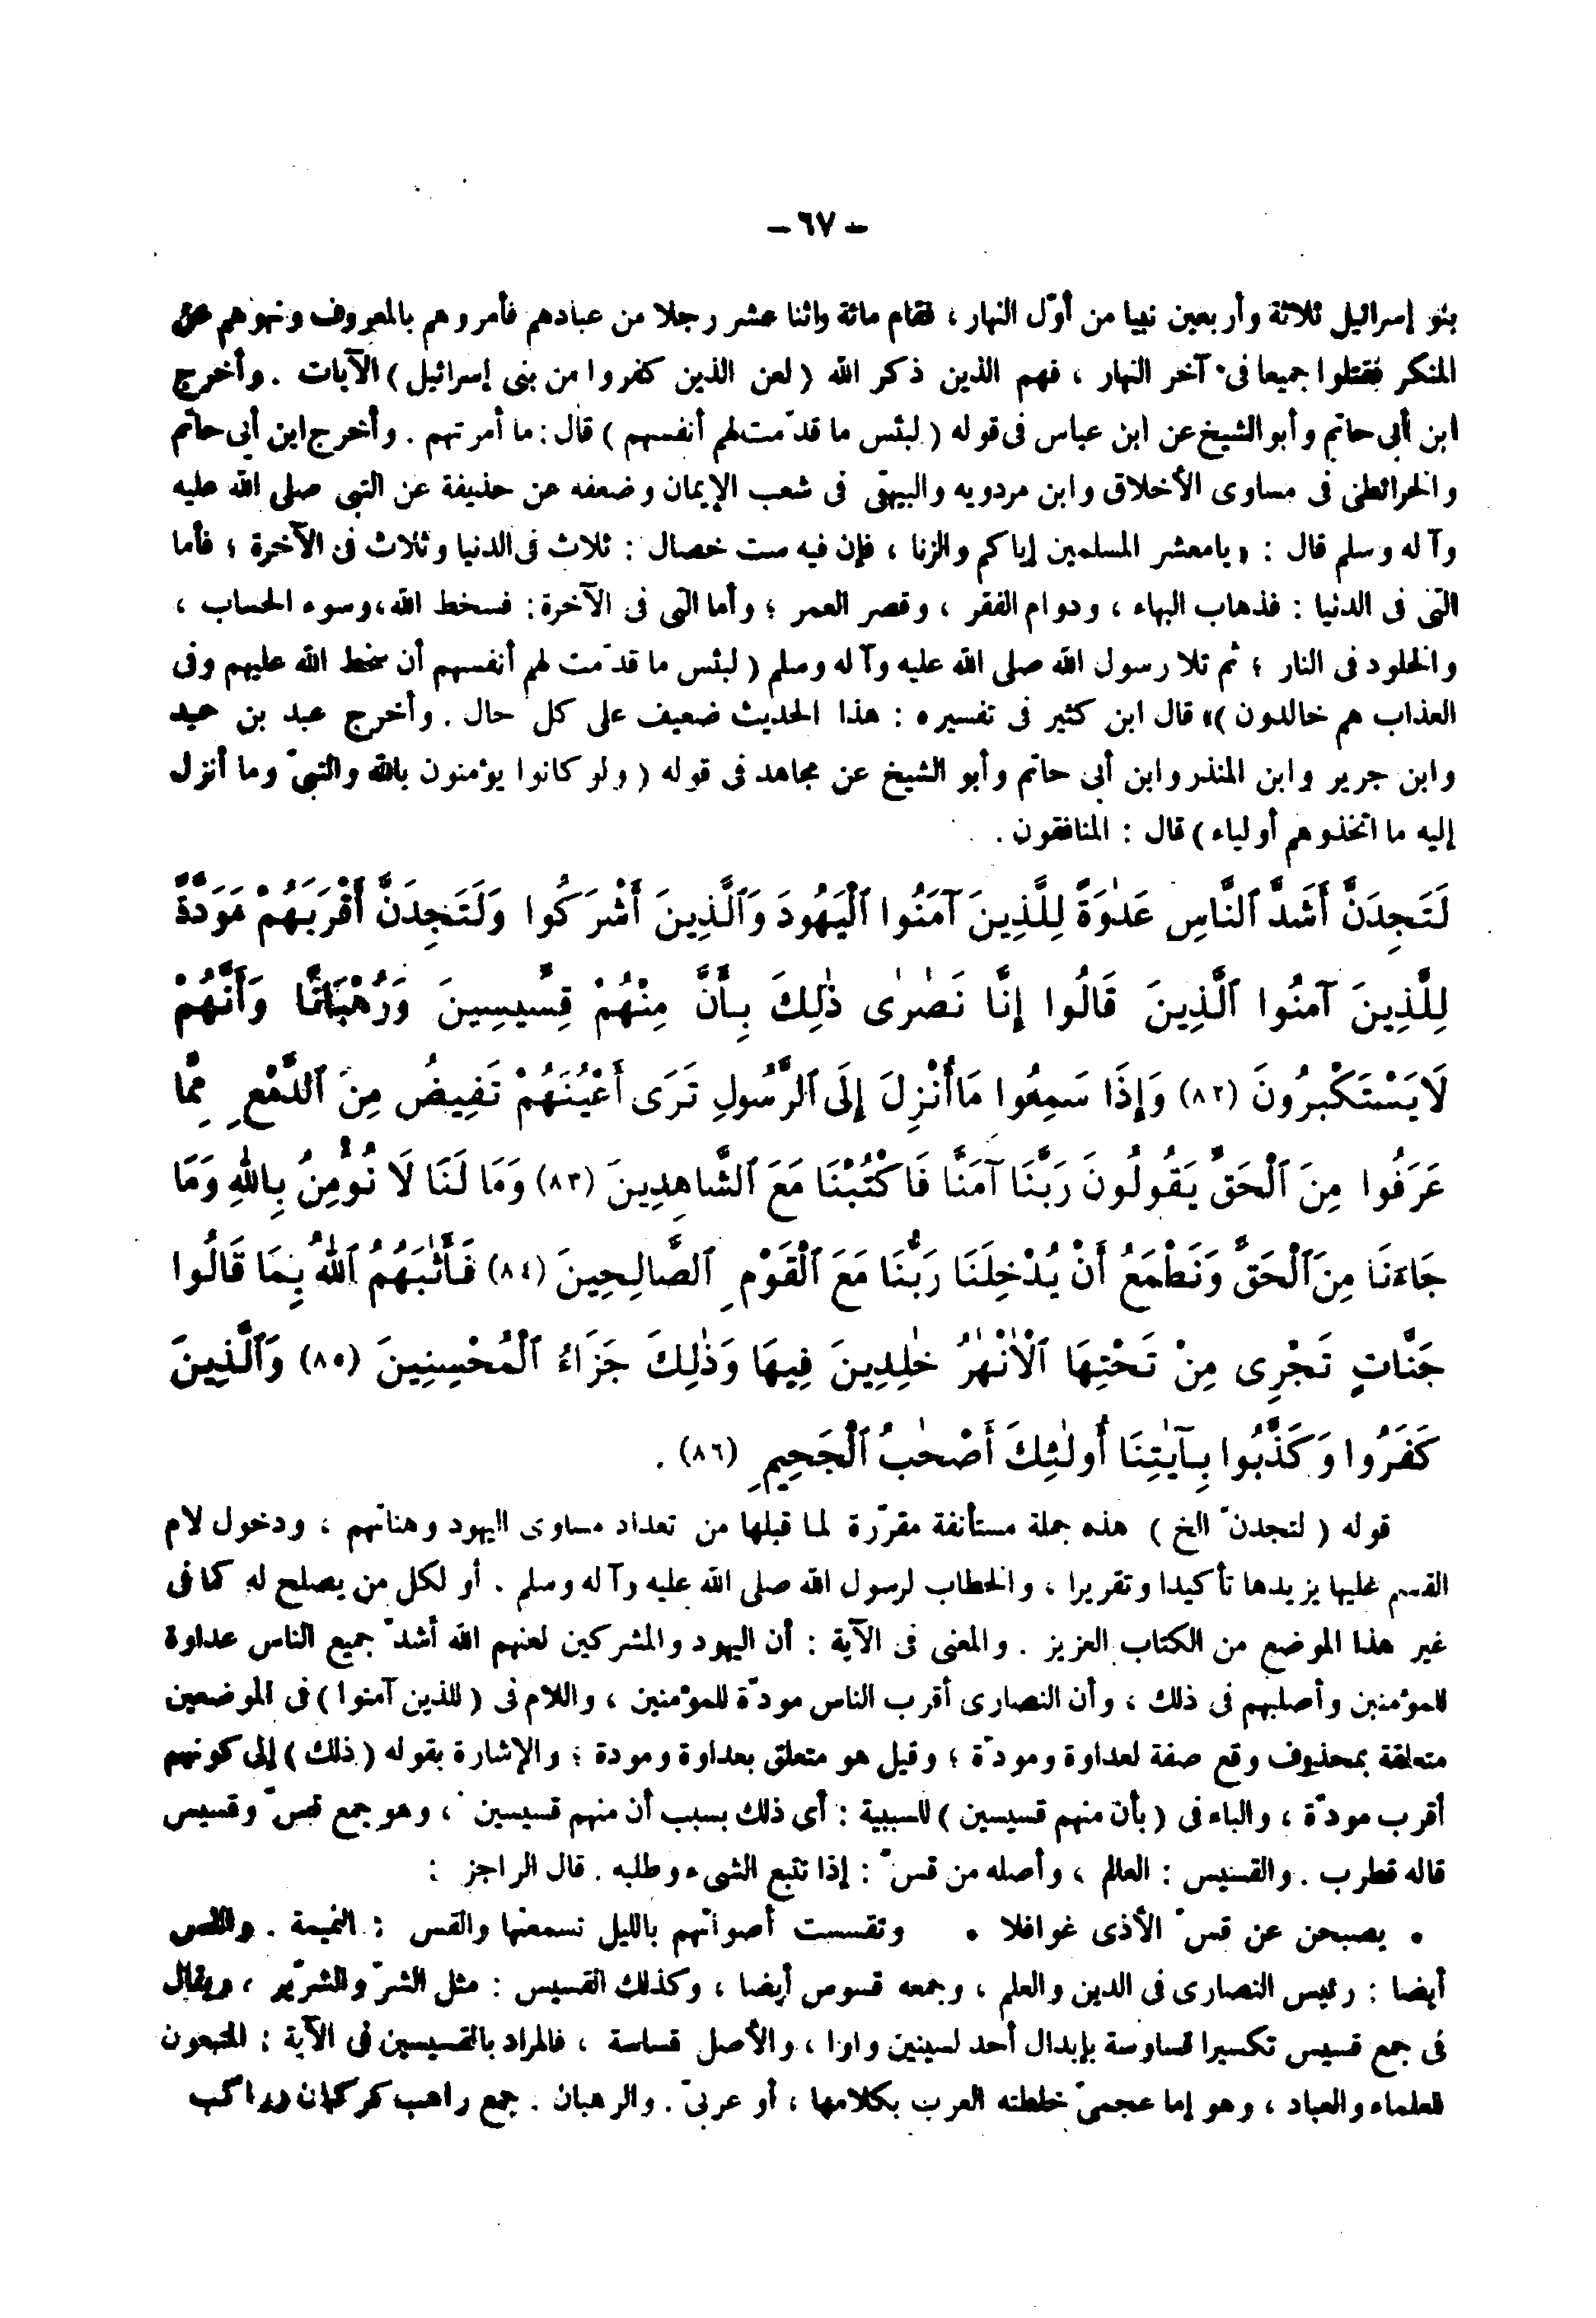 – ٦٧ –
بنو إسرائيل ثلاثة وأربعين نبيا من أوّل النهار ، فقام مائة واثنا عشر رجلا من عبادهم فأمروهم بالمعروف ونهوهم عن
المنكر فقتلوا جميعا فى آخر النهار ، فهم الذين ذكر الله ( لعن الذين كفروا من بنى إسرائيل ) الآيات . وأخرج
ابن أبى حاتم وأبو الشيخ عن ابن عباس فى قوله ( لبئس ما قدّمت لهم أنفسهم ) قال : ما أمرتهم . وأخرج ابن أبى حاتم
والخرائطى فى مساوى الأخلاق وابن مردويه والبيهقى فى شعب الإيمان وضعفه عن حذيفة عن النبى صلى الله عليه
وآله وسلم قال : « يامعشر المسلمين إياكم والزنا ، فإن فيه ست خصال : ثلاث فى الدنيا وثلاث فى الآخرة ؛ فأما
التى فى الدنيا : فذهاب البهاء ، ودوام الفقر ، وقصر العمر ؛ وأما التى فى الآخرة : فسخط الله ، وسوء الحساب ،
والخلود فى النار ؛ ثم تلا رسول الله صلى الله عليه وآله وسلم ( لبئس ما قدّمت لهم أنفسهم أن سخط الله عليهم وفى
العذاب هم خالدون )» قال ابن كثير فى تفسيره : هذا الحديث ضعيف على كل حال . وأخرج عبد بن حميد
وابن جرير وابن المنذر وابن أبى حاتم وأبو الشيخ عن مجاهد فى قوله ( ولو كانوا يؤمنون بالله والنبىّ وما أنزل
إليه ما اتخذوهم أولياء ) قال : المنافقون .
لَتَجِدَنَّ أَشَدَّ ٱلنَّاسِ عَدٰوَةً لِلَّذِينَ آمَنُوا ٱلْيَهُودَ وَٱلَّذِينَ أَشْرَكُوا وَلَتَجِدَنَّ أَقْرَبَهُمْ مَوَدَّةً
لِلَّذِينَ آمَنُوا ٱلَّذِينَ قَالُوا إِنَّا نَصٰرٰى ذٰلِكَ بِأَنَّ مِنْهُمْ قِسِّيسِينَ وَرُهْبَانًا وَأَنَّهُمْ
لَا يَسْتَكْبِرُونَ (٨٢) وَإِذَا سَمِعُوا مَا أُنْزِلَ إِلَى ٱلرَّسُولِ تَرَى أَعْيُنَهُمْ تَفِيضُ مِنَ ٱلدَّمْعِ مِمَّا
عَرَفُوا مِنَ ٱلْحَقِّ يَقُولُونَ رَبَّنَا آمَنَّا فَاكْتُبْنَا مَعَ ٱلشَّاهِدِينَ (٨٣) وَمَا لَنَا لَا نُؤْمِنُ بِاللهِ وَمَا
جَاءَنَا مِنَ ٱلْحَقِّ وَنَطْمَعُ أَنْ يُدْخِلَنَا رَبُّنَا مَعَ ٱلْقَوْمِ ٱلصَّالِحِينَ (٨٤) فَأَثٰبَهُمُ ٱللهُ بِمَا قَالُوا
جَنَّاتٍ تَجْرِى مِنْ تَحْتِهَا ٱلْأَنْهٰرُ خٰلِدِينَ فِيهَا وَذٰلِكَ جَزَاءُ ٱلْمُحْسِنِينَ (٨٥) وَٱلَّذِينَ
كَفَرُوا وَكَذَّبُوا بِآيٰتِنَا أُولٰئِكَ أَصْحٰبُ ٱلْجَحِيمِ (٨٦) .
قوله ( لتجدنّ الخ ) هذه جملة مستأنفة مقرّرة لما قبلها من تعداد مساوى اليهود وهناتهم ، ودخول لام
القسم عليها يزيدها تأكيدا وتقريرا ، والخطاب لرسول الله صلى الله عليه وآله وسلم . أو لكل من يصلح له كما فى
غير هذا الموضع من الكتاب العزيز . والمعنى فى الآية : أن اليهود والمشركين لعنهم الله أشدّ جميع الناس عداوة
للمؤمنين وأصلبهم فى ذلك ، وأن النصارى أقرب الناس مودّة للمؤمنين ، واللام فى ( للذين آمنوا ) فى الموضعين
متعلقة بمحذوف وقع صفة لعداوة ومودّة ؛ وقيل هو متعلق بعداوة ومودة ؛ والإشارة بقوله ( ذلك ) إلى كونهم
أقرب مودّة ، والباء فى ( بأن منهم قسيسين ) للسببية : أى ذلك بسبب أن منهم قسيسين ، وهو جمع قسّ وقسيس
قاله قطرب . والقسيس : العالم ، وأصله من قسّ : إذا تتبع الشىء وطلبه . قال الراجز :
• يصبحن عن قسّ الأذى غوافلا • وتقسست أصواتهم بالليل تسمعتها والقس : النميمة . والقس
أيضا : رئيس النصارى فى الدين والعلم ، وجمعه قسوس أيضا ، وكذلك القسيس : مثل الشرّ والشرّير ، ويقال
فى جمع قسيس تكسيرا قساوسة بإبدال أحد لسينين واوا ، والأصل قساسة ، فالمراد بالقسيسين فى الآية : المتبعون
للعلماء والعباد ، وهو إما عجمىّ خلطته العرب بكلامها ، أو عربىّ . والرهبان . جمع راهب كركبان وراكب